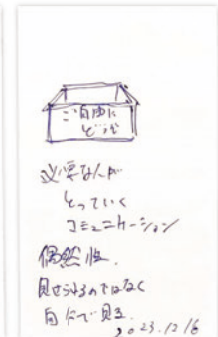 ご自由に
どうぞ
必要な人が
とっていく
コミュニケーション
偶然性。
見せられるのではなく
自分で見る。
2023.12/6